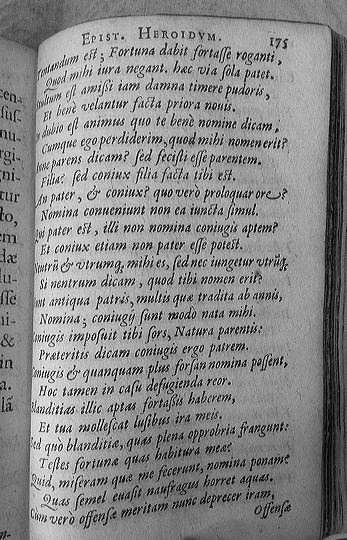 EPIST. HEROIDVM. 175
Tentandum est; Fortuna dabit fortasse roganti,
Quod mihi iura negant. hæc via sola patet.
Stultum est amissi iam damna timere pudoris,
Et benè velantur facta priora nouis.
In dubio est animus quo te benè nomine dicam,
Cumque ego perdiderim, quod mihi nomen erit?
parens dicam? sed fecisti esse parentem.
Filia? sed coniux filia facta tibi est.
An pater, & coniux? quo verò proloquar ore?
Nomina conueniunt non ea iuncta simul.
Qui pater est, illi non nomina coniugis aptem?
Et coniux etiam non pater esse potest.
Neutrũ & vtrumq; mihi es, sed nec iungetur vtrũq;
Si nentrum dicam, quod tibi nomen erit?
Sunt antiqua patris, multis quæ tradita ab annis,
Nomina; coniugij sunt modo nata mihi.
Coniugis imposuit tibi sors, Natura parentis:
Præteritis dicam coniugis ergo patrem.
Coniugis & quanquam plus forsan nomina possent,
Hoc tamen in casu defugienda reor.
Blanditias illic aptas fortassis haberem,
Et tua mollescat lusibus ira meis.
Sed quò blanditiæ, quas plena opprobria frangunt:
Testes fortunæ quas habitura meæ?
Quid, miseram quæ me fecerunt, nomina ponam?
Quas semel euasit naufragus horret aquas.
Cum verò offensæ meritam nunc deprecer iram,
Offensæ
cen-
sus-
nu-
rgi-
gni-
tur
to,
em
dæ
lu-
sse
ui-
&
in
a.
lã